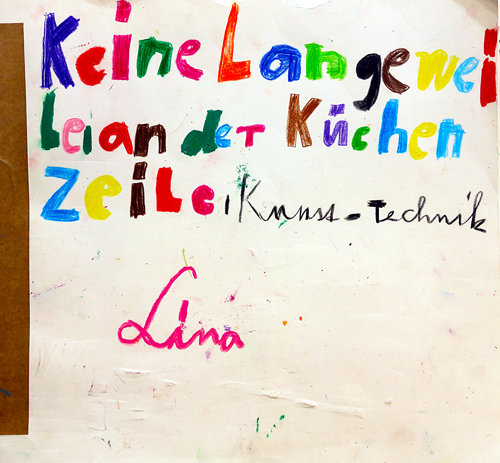 Keine Langewei
leian der Küchen
Zeile, Kunss-Technik
Lina